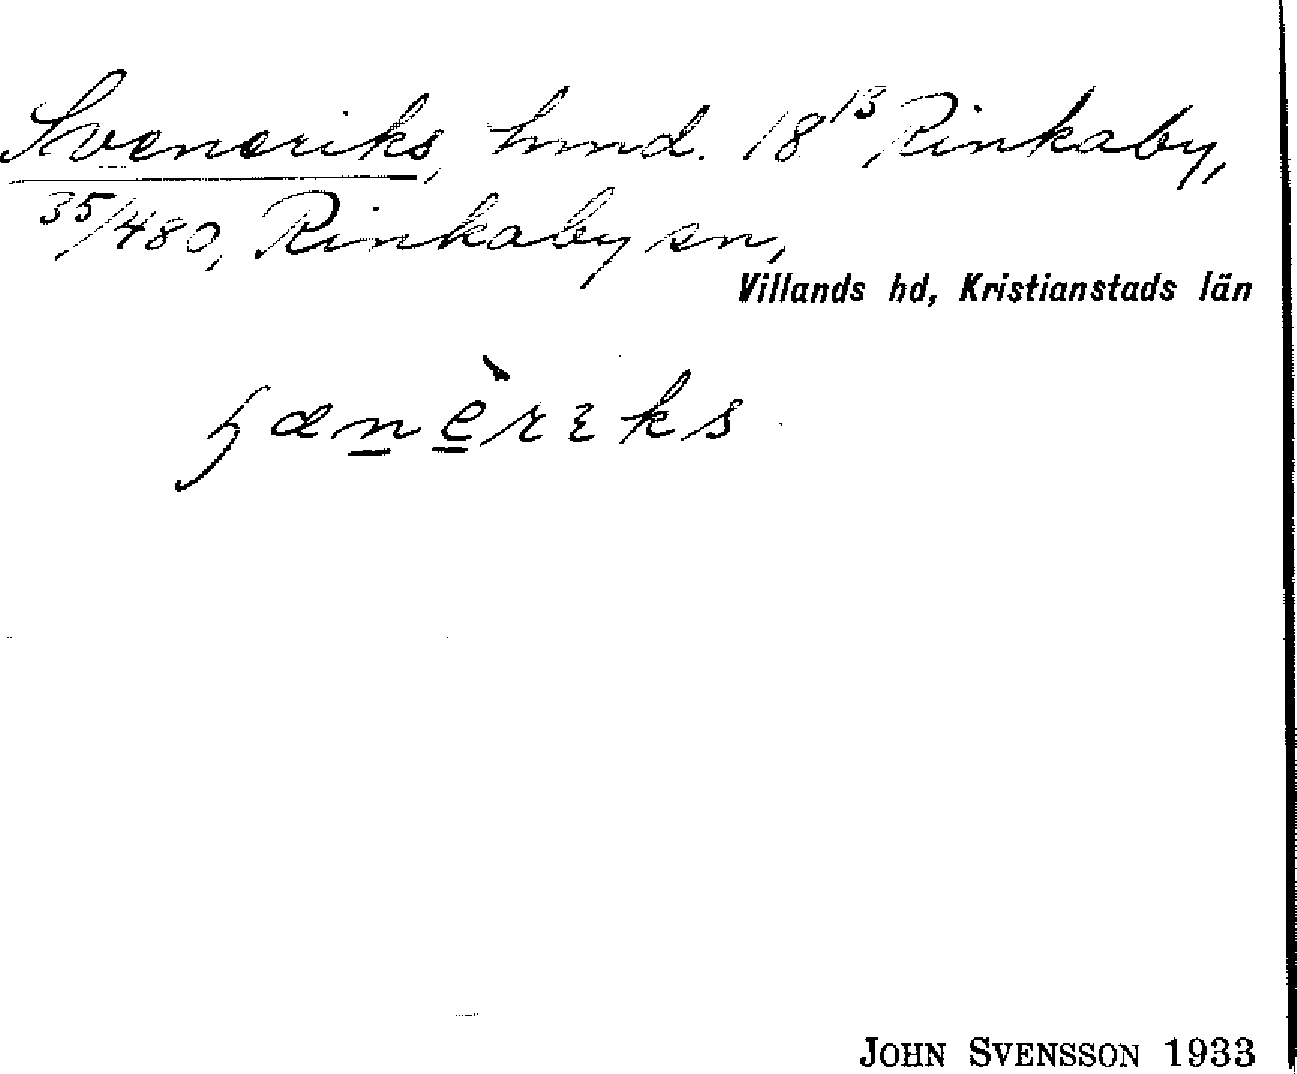 Sveneriks, hmd. 18¹³ Rinkaby,
35/480, Rinkaby sn,
Villands hd, Kristianstads län
JOHN SVENSSON 1933